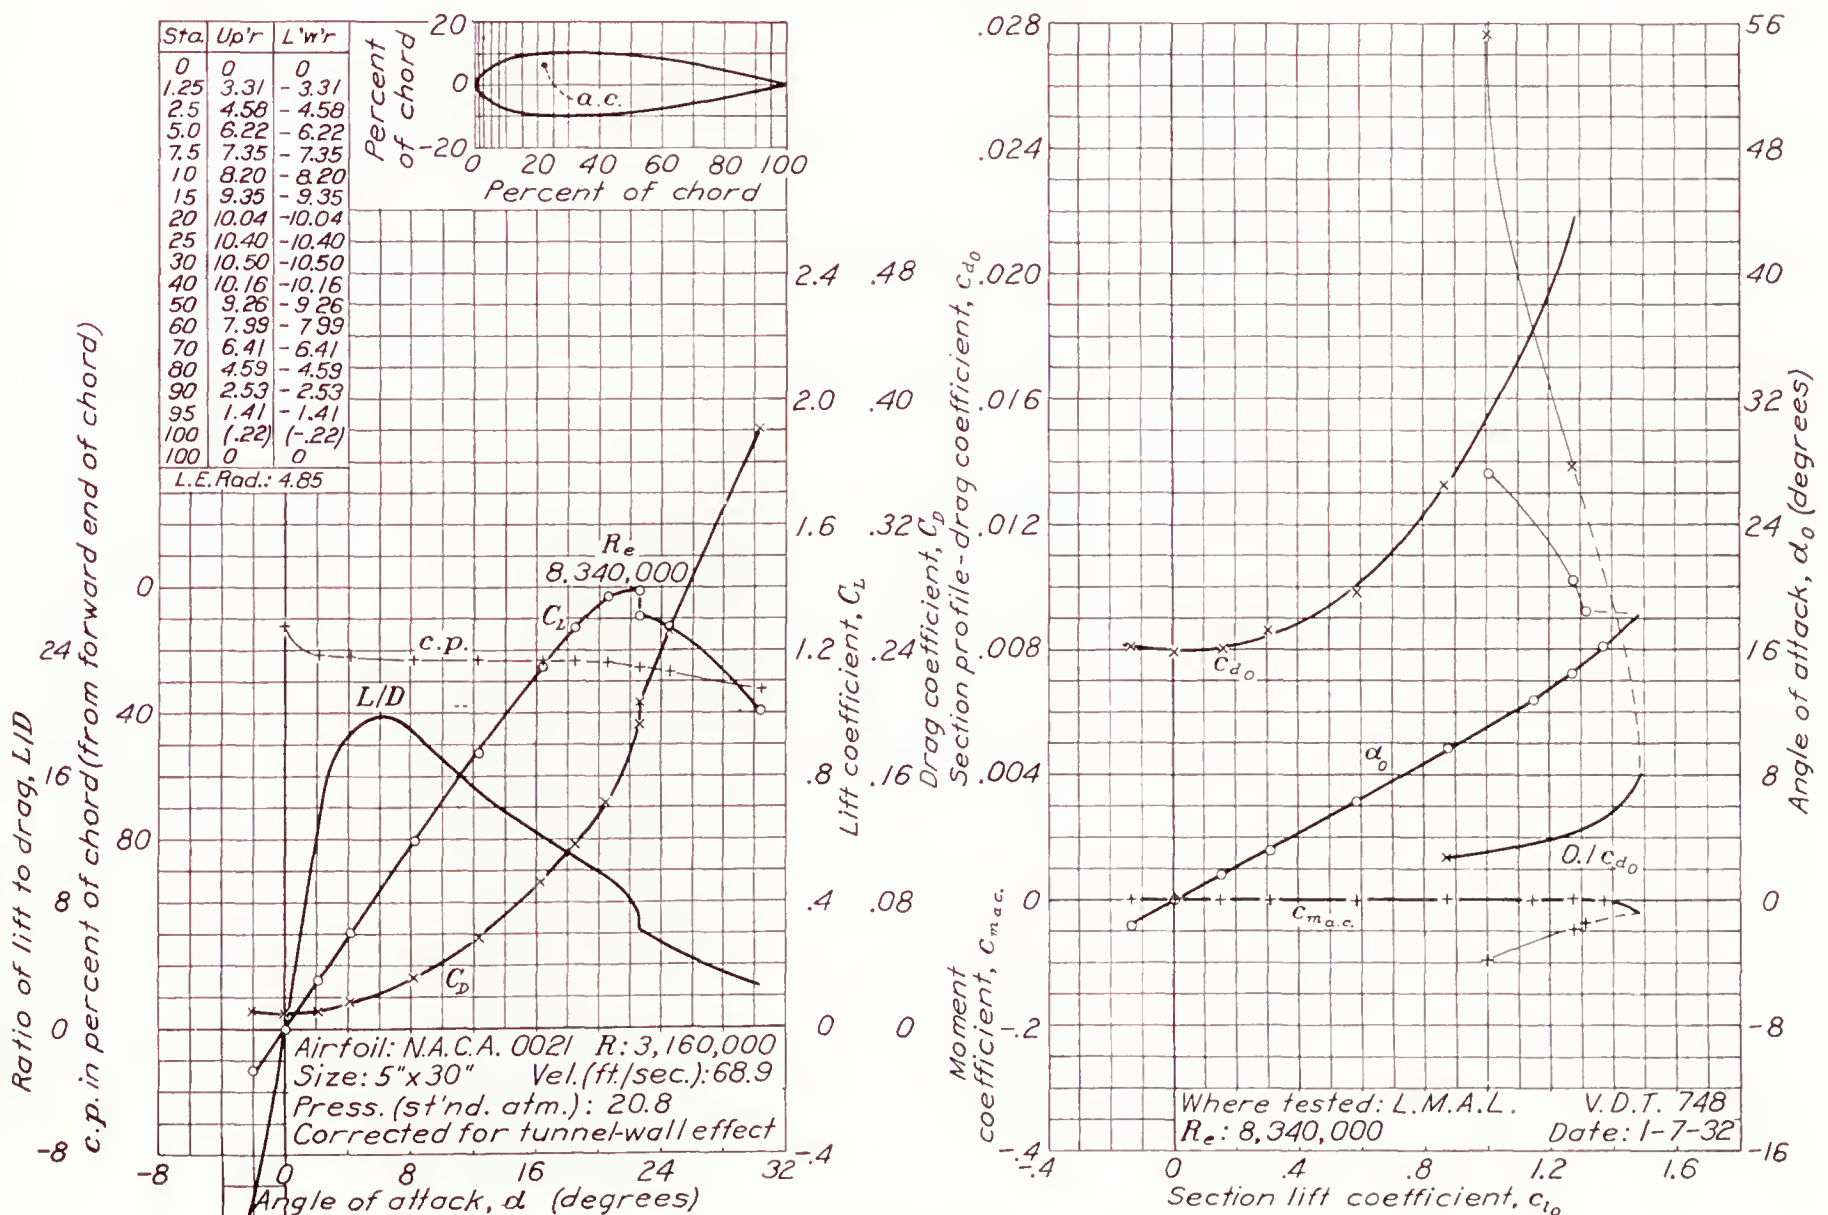 Sta. Up'r L'w'r
0 0 0
1.25 3.31 -3.31
2.5 4.58 -4.58
5.0 6.22 -6.22
7.5 7.35 -7.35
10 8.20 -8.20
15 9.35 -9.35
20 10.04 -10.04
25 10.40 -10.40
30 10.50 -10.50
40 10.16 -10.16
50 9.26 -9.26
60 7.99 -7.99
70 6.41 -6.41
80 4.59 -4.59
90 2.53 -2.53
95 1.41 -1.41
100 (.22) (-.22)
100 0 0
L.E. Rad.: 4.85
Percent
of chord
20
0
-20
a.c.
0 20 40 60 80 100
Percent of chord
Ratio of lift to drag, L/D
c.p. in percent of chord (from forward end of chord)
0
24
40
16
80
8
0
-8
Re
8,340,000
CL
c.p.
L/D
CD
2.4 .48
2.0 .40
1.6 .32
1.2 .24
.8 .16
.4 .08
0 0
-.4
Lift coefficient, CL
Drag coefficient, CD
Airfoil: N.A.C.A. 0021 R: 3,160,000
Size: 5"x30" Vel.(ft./sec.): 68.9
Press. (st'nd. atm.): 20.8
Corrected for tunnel-wall effect
-8 0 8 16 24 32
Angle of attack, α (degrees)
Section profile-drag coefficient, cd0
.028
.024
.020
.016
.012
.008
.004
0
-.2
-.4
Moment
coefficient, cm a.c.
cd0
α0
0.1 cd0
cm a.c.
56
48
40
32
24
16
8
0
-8
-16
Angle of attack, α0 (degrees)
Where tested: L.M.A.L. V.D.T. 748
Re: 8,340,000 Date: 1-7-32
-.4 0 .4 .8 1.2 1.6
Section lift coefficient, cl0